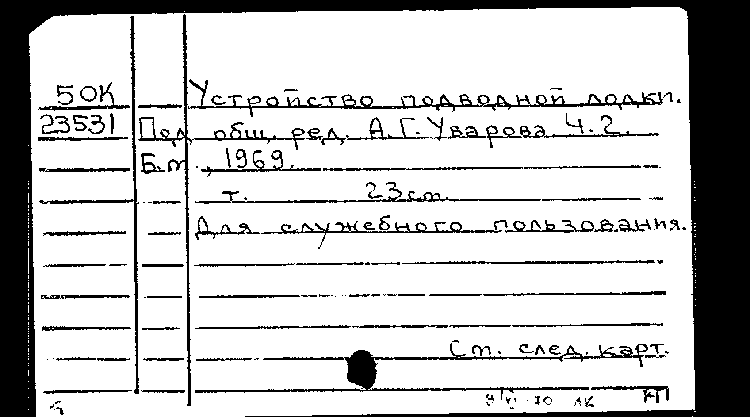 50К Устройство подводной лодки.
23531 Под общ. ред. А.Г. Уварова. Ч.2.
Б.м., 1969.
т. 23 см.
Для служебного пользования.
См. след. карт.